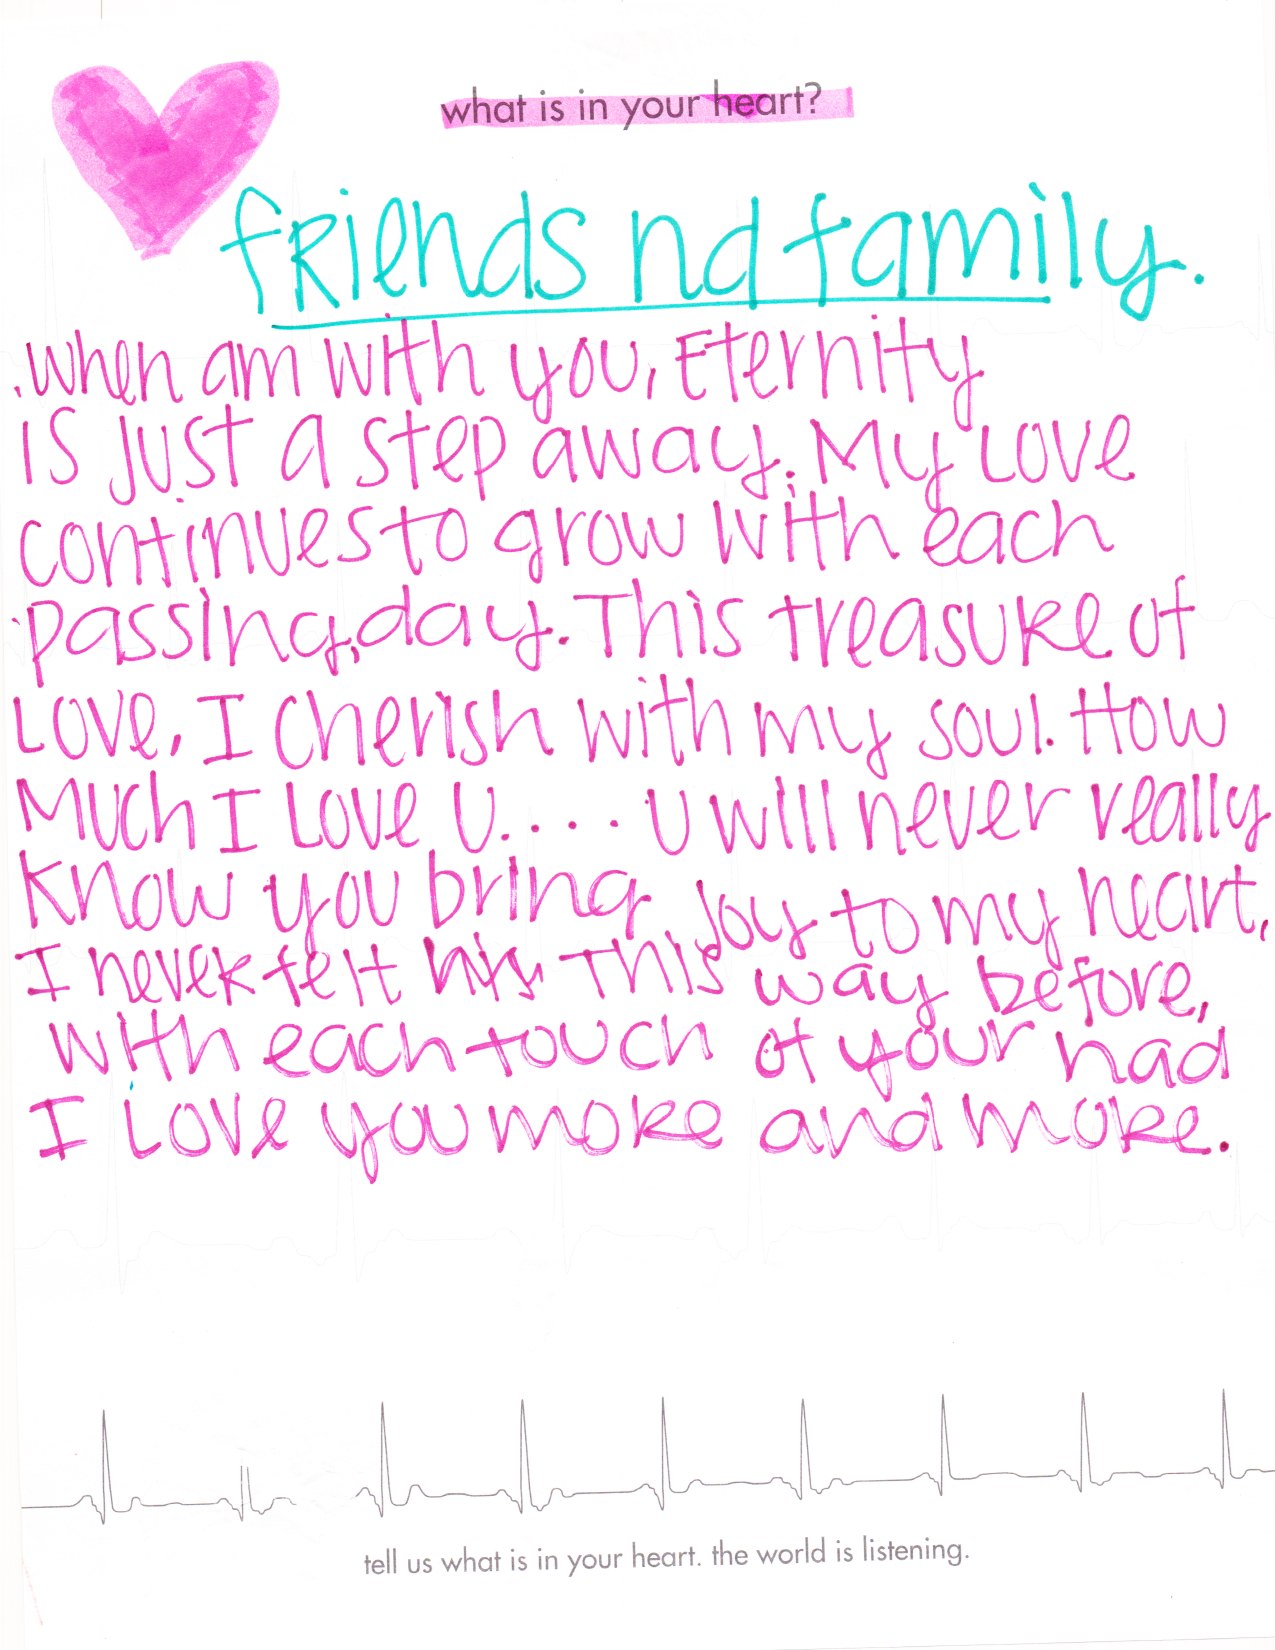 what is in your heart?
friends nd family.
When am with you, Eternity
is just a step away. My Love
continues to grow with each
passing, day. This treasure of
Love, I cherish with my soul. How
Much I Love U.... U will never really
know you bring joy to my heart.
I never felt this way before,
with each touch of your had
I Love you more and more.
tell us what is in your heart. the world is listening.